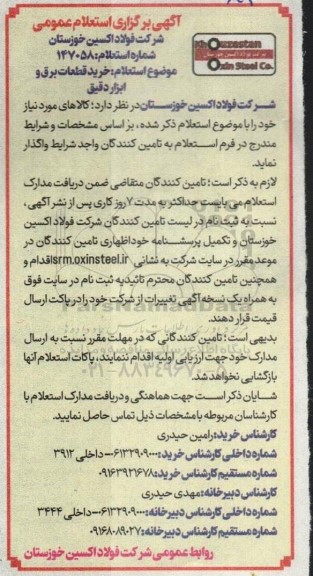 آگهی برگزاری استعلام عمومی
شرکت فولاد اکسین خوزستان
شماره استعلام: ۱۴۷۰۵۸
موضوع استعلام: خرید قطعات برق و
ابزار دقیق
Khouzestan
Oxin Steel Co.
شرکت فولاد اکسین خوزستان در نظر دارد؛ کالاهای مورد نیاز
خود را با موضوع استعلام ذکر شده، بر اساس مشخصات و شرایط
مندرج در فرم استعلام به تامین کنندگان واجد شرایط واگذار
نماید.
لازم به ذکر است؛ تامین کنندگان متقاضی ضمن دریافت مدارک
استعلام می بایست حداکثر به مدت ۷ روز کاری پس از نشر آگهی،
نسبت به ثبت نام در لیست تامین کنندگان شرکت فولاد اکسین
خوزستان و تکمیل پرسشنامه خوداظهاری تامین کنندگان در
موعد مقرر در سایت شرکت به نشانی srm.oxinsteel.ir اقدام و
همچنین تامین کنندگان محترم تائیدیه ثبت نام در سایت فوق
به همراه یک نسخه آگهی تغییرات از شرکت خود را در پاکت ارسال
قیمت قرار دهند.
بدیهی است؛ تامین کنندگانی که در مهلت مقرر نسبت به ارسال
مدارک خود جهت ارزیابی اولیه اقدام ننمایند، پاکات استعلام آنها
بازگشایی نخواهد شد.
شایان ذکر است جهت هماهنگی و دریافت مدارک استعلام با
کارشناسان مربوطه با مشخصات ذیل تماس حاصل نمایید.
کارشناس خرید: رامین حیدری
شماره داخلی کارشناس خرید: ۰۶۱۳۲۹۰۹۰۰۰- داخلی ۳۹۱۲
شماره مستقیم کارشناس خرید: ۰۹۱۶۳۹۲۱۶۷۸
کارشناس دبیرخانه: مهدی حیدری
شماره داخلی کارشناس دبیرخانه: ۰۶۱۳۲۹۰۹۰۰۰- داخلی ۳۴۴۴
شماره مستقیم کارشناس دبیرخانه: ۰۹۱۶۸۰۸۹۰۲۷
روابط عمومی شرکت فولاد اکسین خوزستان